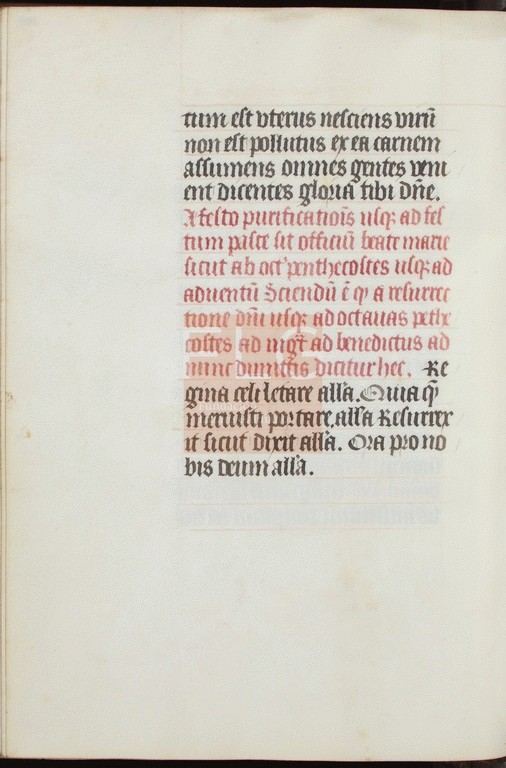 tum est vterus nesciens virū
non est pollutus ex ea carnem
assumens omnes gentes veni
ent dicentes gloriā tibi dn̄e.
A festo purificatiōis usqꝫ ad fes
tum pasce sit officiū beate marie
sicut ab oct' penthecostes usqꝫ ad
aduentū Sciendū ē ꝙ a resurrec
tione dn̄i usqꝫ ad octauas pethe
costes ad ad benedictus ad
nunc dimittis dicitur hec. Re
gina celi letare all'a. Quia ꝙ̄
meruisti portare. all'a Resurrex
it sicut dixit all'a. Ora pro no
bis deum all'a.